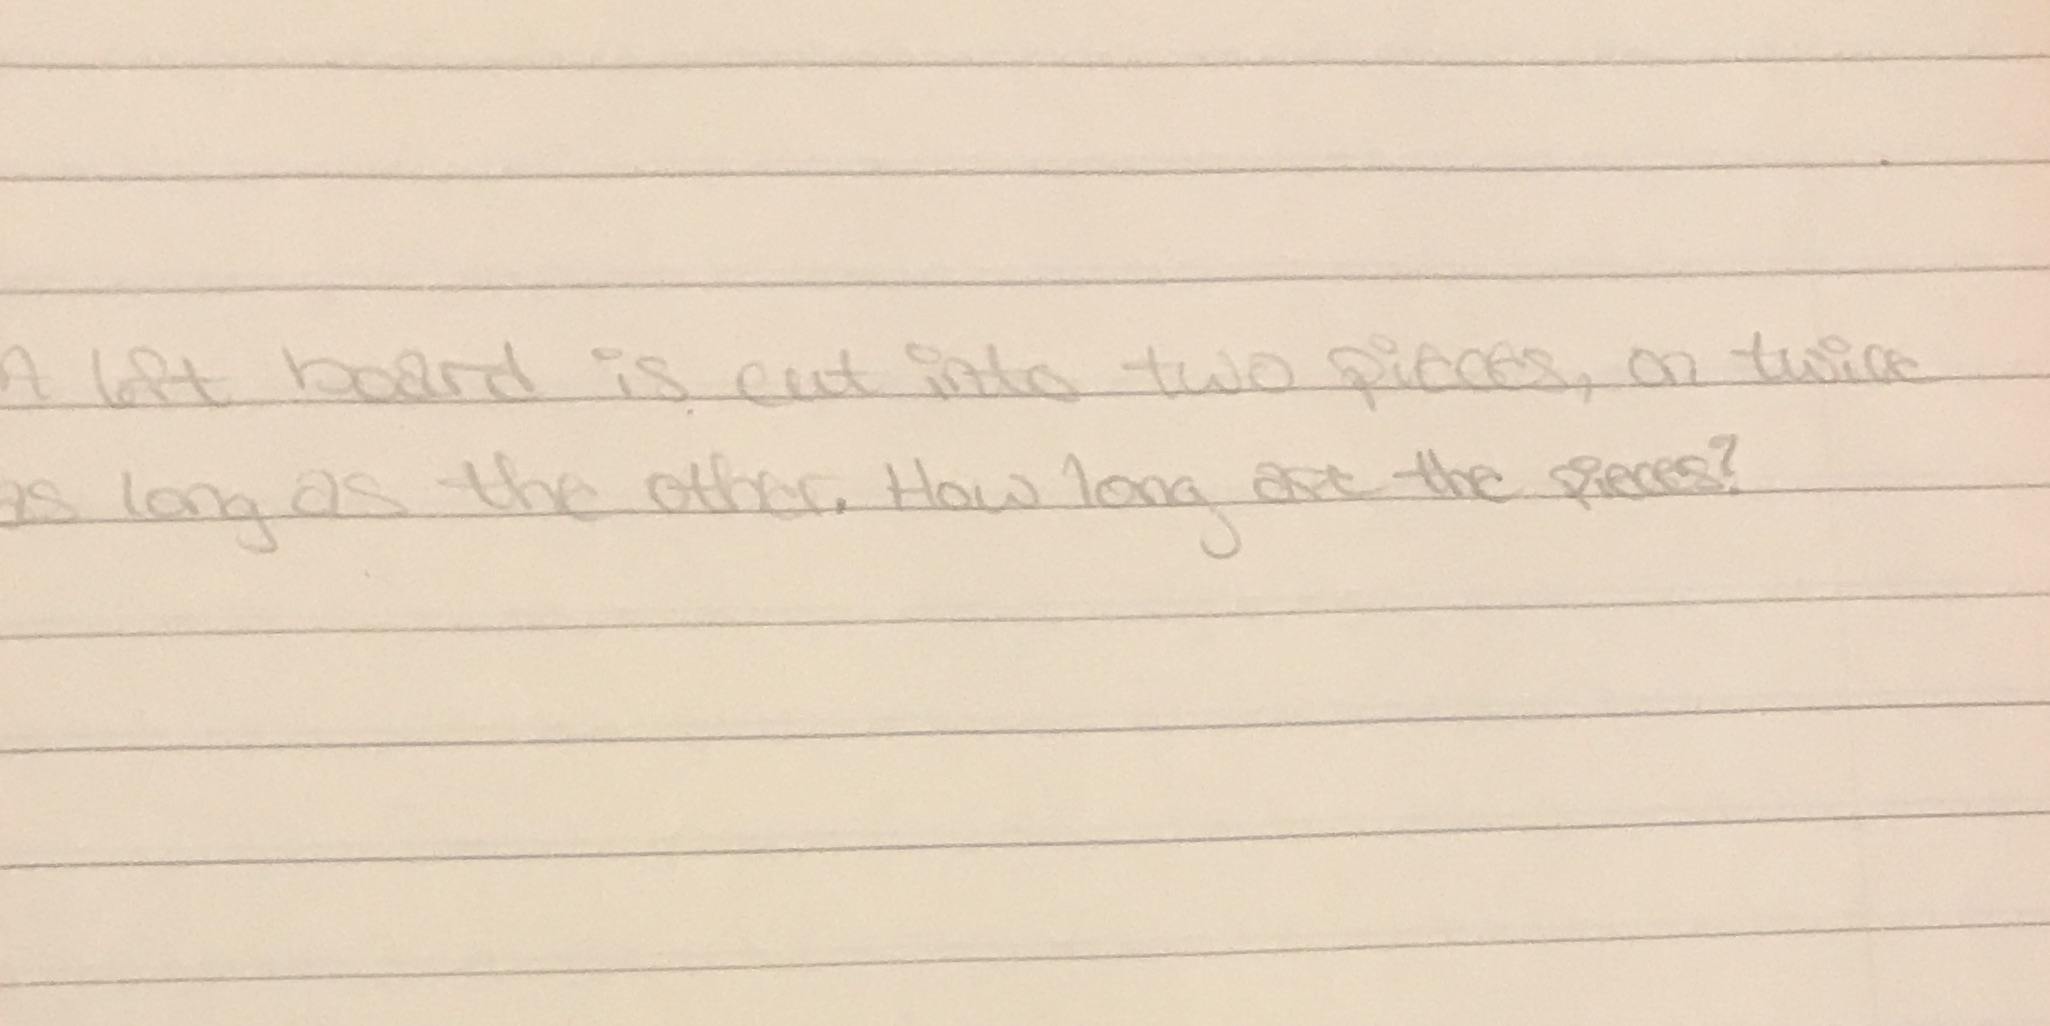 A 6ft board is cut into two pieces, on twice
as long as the other. How long are the pieces?